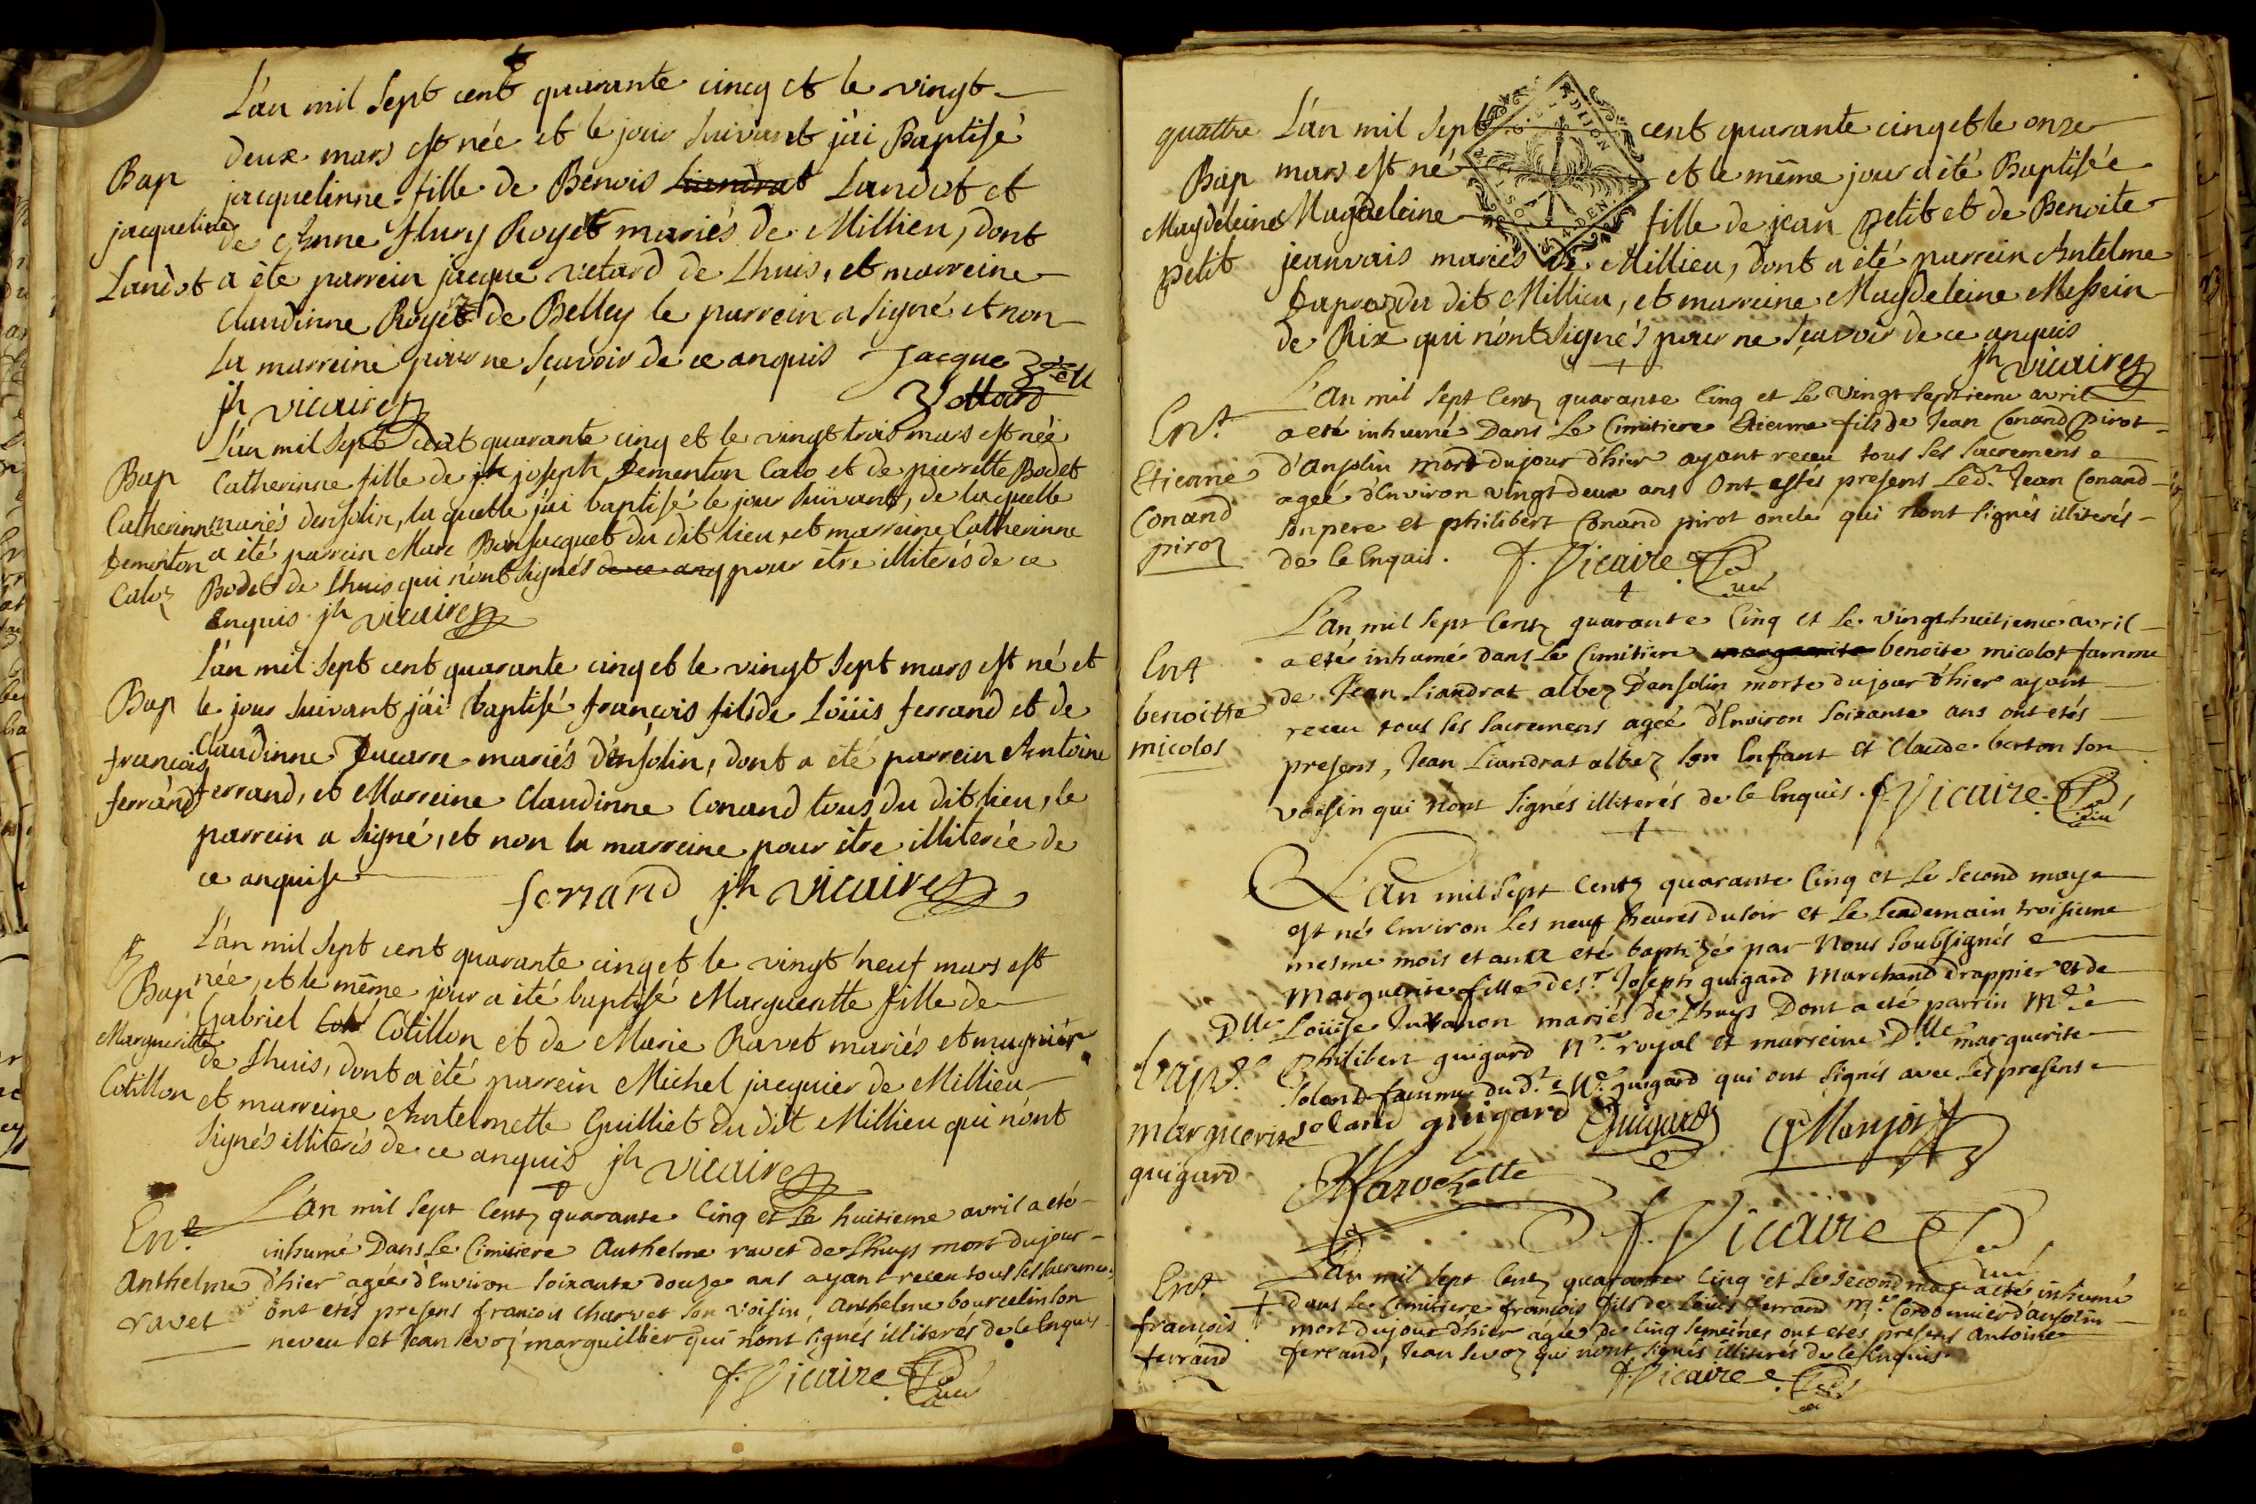 L'an mil sept cent quarante cincq et le vingt
deux mars est née et le jour suivant j'ai Baptisé
Bap
jacquelinne fille de Benois Liandrat Landot et
jacqueline
de Anne flury Royet mariés de Millieu, dont
Landot
a été parrein jacque vetard de Lhuis, et marreine
Claudinne Royet de Belley le parrein a signé et non
La marreine pour ne sçavoir de ce anquis Jacque
jh vicaire
L'an mil sept cent quarante cinq et le vingt trois mars est née
Bap
Catherinne fille de jh joseph Dementon Calo et de pierrette Bodet
Catherinne
mariés densolin, laquelle j'ai baptisé le jour suivant, de laquelle
Dementon
a été parrein Marc Bonjacquet du dit lieu, et marreine Catherinne
Caloz
Bodet de Lhuis qui n'ont signés de ce anq pour être illiterés de ce
Enquis jh vicaire
L'an mil sept cent quarante cinq et le vingt sept mars est né et
Bap
le jour suivant j'ai baptisé françois fils de Loüis ferrand et de
francois
Claudinne Ducarre mariés d'ensolin, dont a été parrein Antoine
ferrand
ferrand, et Marreine Claudinne Conand tous du dit lieu, le
parrein a signé, et non la marreine pour être illiterée de
ce anquise
ferrand jh vicaire
L'an mil sept cent quarante cinq et le vingt neuf mars est
Bap
née, et le même jour a été baptisé Margueritte fille de
Margueritte
Gabriel Coti Cotillon et de Marie Ravet mariés et mugnier
Cotillon
de Lhuis, dont a été parrein Michel jacquier de Millieu
et marreine Antelmette Guilliet du dit Millieu qui n'ont
signés illiterés de ce anquis jh vicaire
L'an mil sept Centz quarante Cinq et Le huitieme avril a eté
Ent
inhumé Dans Le Cimitiere Anthelme ravet de Lhuys mort du jour
Anthelme
d'hier agée d'Environ soixante douze ans ayant receu tous ses sacremens
ravet
ont etés presens francois charvet son voisin, Anthelme bourcelin son
neveu et Jean levoz marguillier qui n'ont signés illiterés de Ce Enquis
f. Vicaire
quattre
L'an mil sept cent quarante cinq et le onze
Bap
mars est né et le même jour a été Baptisée
Magdeleine
Magdeleine fille de jean petit et de Benoite
petit
jeanvais mariés de Millieu, dont a été parrein Antelme
Dupraz du dit Millieu, et marreine Magdeleine Messein
de Rix qui n'ont signés pour ne sçavoir de ce anquis
jh vicaire
L'An mil sept Centz quarante Cinq et Le Vingt septieme avril
Ent
a eté inhumé Dans Le Cimitiere Etienne fils de Jean Conand Pirot
Etienne
d'Ansolin mort du jour d'hier ayant receu tous ses sacremens
Conand
ageé d'Environ vingt deux ans Ont estés presens Led. Jean Conand
piroz
son pere et philibert Conand pirot oncle qui n'ont signés illiterés
de Ce Enquis. f. Vicaire
L'an mil sept Centz quarante Cinq et Le vingt huitieme avril
Ent
a eté inhumé dans Le Cimitiere marguerite benoite micolot famme
benoitte
de Jean Liandrat albez d'ensolin morte du jour d'hier ayant
micolos
receu tous ses sacremens ageé d'Environ soixante ans ont etés
presens, Jean Liandrat albez son Enfant et Claude berton son
voisin qui n'ont signés illiterés de Ce Enquis. f. Vicaire
L'An mil sept Centz quarante Cinq et Le second may
est né Environ Les neuf heures du soir et Le Lendemain troisieme
mesme mois et an a eté baptizé par Nous soubsignés
Marguerite fille de sr. Joseph guigard Marchand drappier et de
Dlle Loüise Juvanon mariés de Lhuys Dont a eté parrin Mre
bapt.
Philibert guigard Nre royal et marreine Dlle marguerite
Marguerite
soland famme du d. Mre guigard qui ont signés avec Les presens
guigard
soland guigard Guigard
Marochette
f. Vicaire
L'an mil sept Centz quarante Cinq et Le second may a eté inhumé
Ent
dans Le Cimitiere françois fils de Loüis ferrand Mre Cordonnier d'ansolin
françois
mort du jour d'hier agée de Cinq semeines ont etés presens antoine
ferrand
ferrand, Jean levoz qui n'ont signés illiterés de Ce Enquis
f. Vicaire